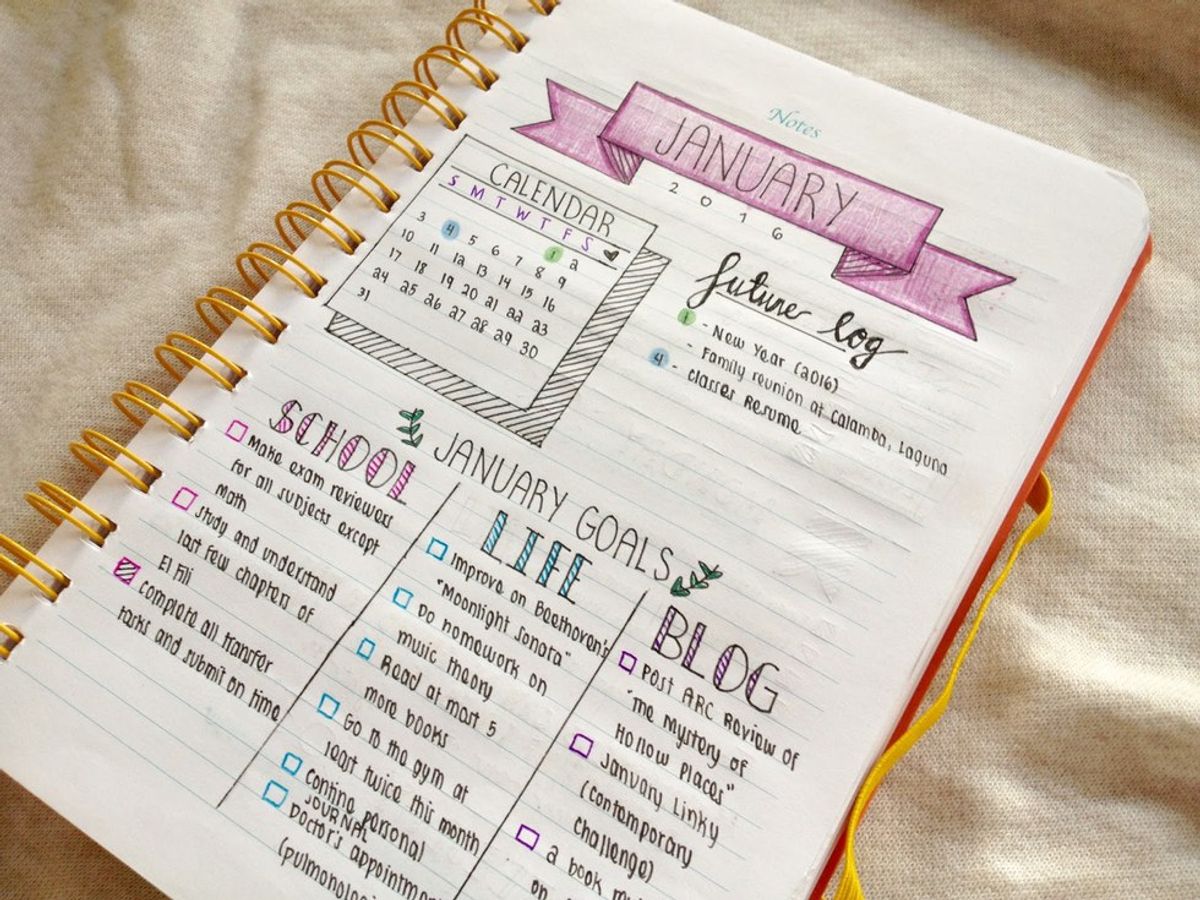 Notes
JANUARY
2016
CALENDAR
S M T W T F S
1 2
3 4 5 6 7 8 9
10 11 12 13 14 15 16
17 18 19 20 21 22 23
24 25 26 27 28 29 30
31
future log
1 - New Year (2016)
- Family reunion at Calamba, Laguna
4 - Classes Resume
JANUARY GOALS
SCHOOL
Make exam reviewers
for all subjects except
Math
Study and understand
last few chapters of
El Fili
Complete all transfer
tasks and submit on time
LIFE
Improve on Beethoven's
"Moonlight Sonata"
Do homework on
music theory
Read at most 5
more books
Go to the gym at
least twice this month
personal
JOURNAL
Doctor's appointment
BLOG
Post ARC Review of
"The Mystery of
Hollow Places"
January Linky
(Contemporary
Challenge)
a book
on